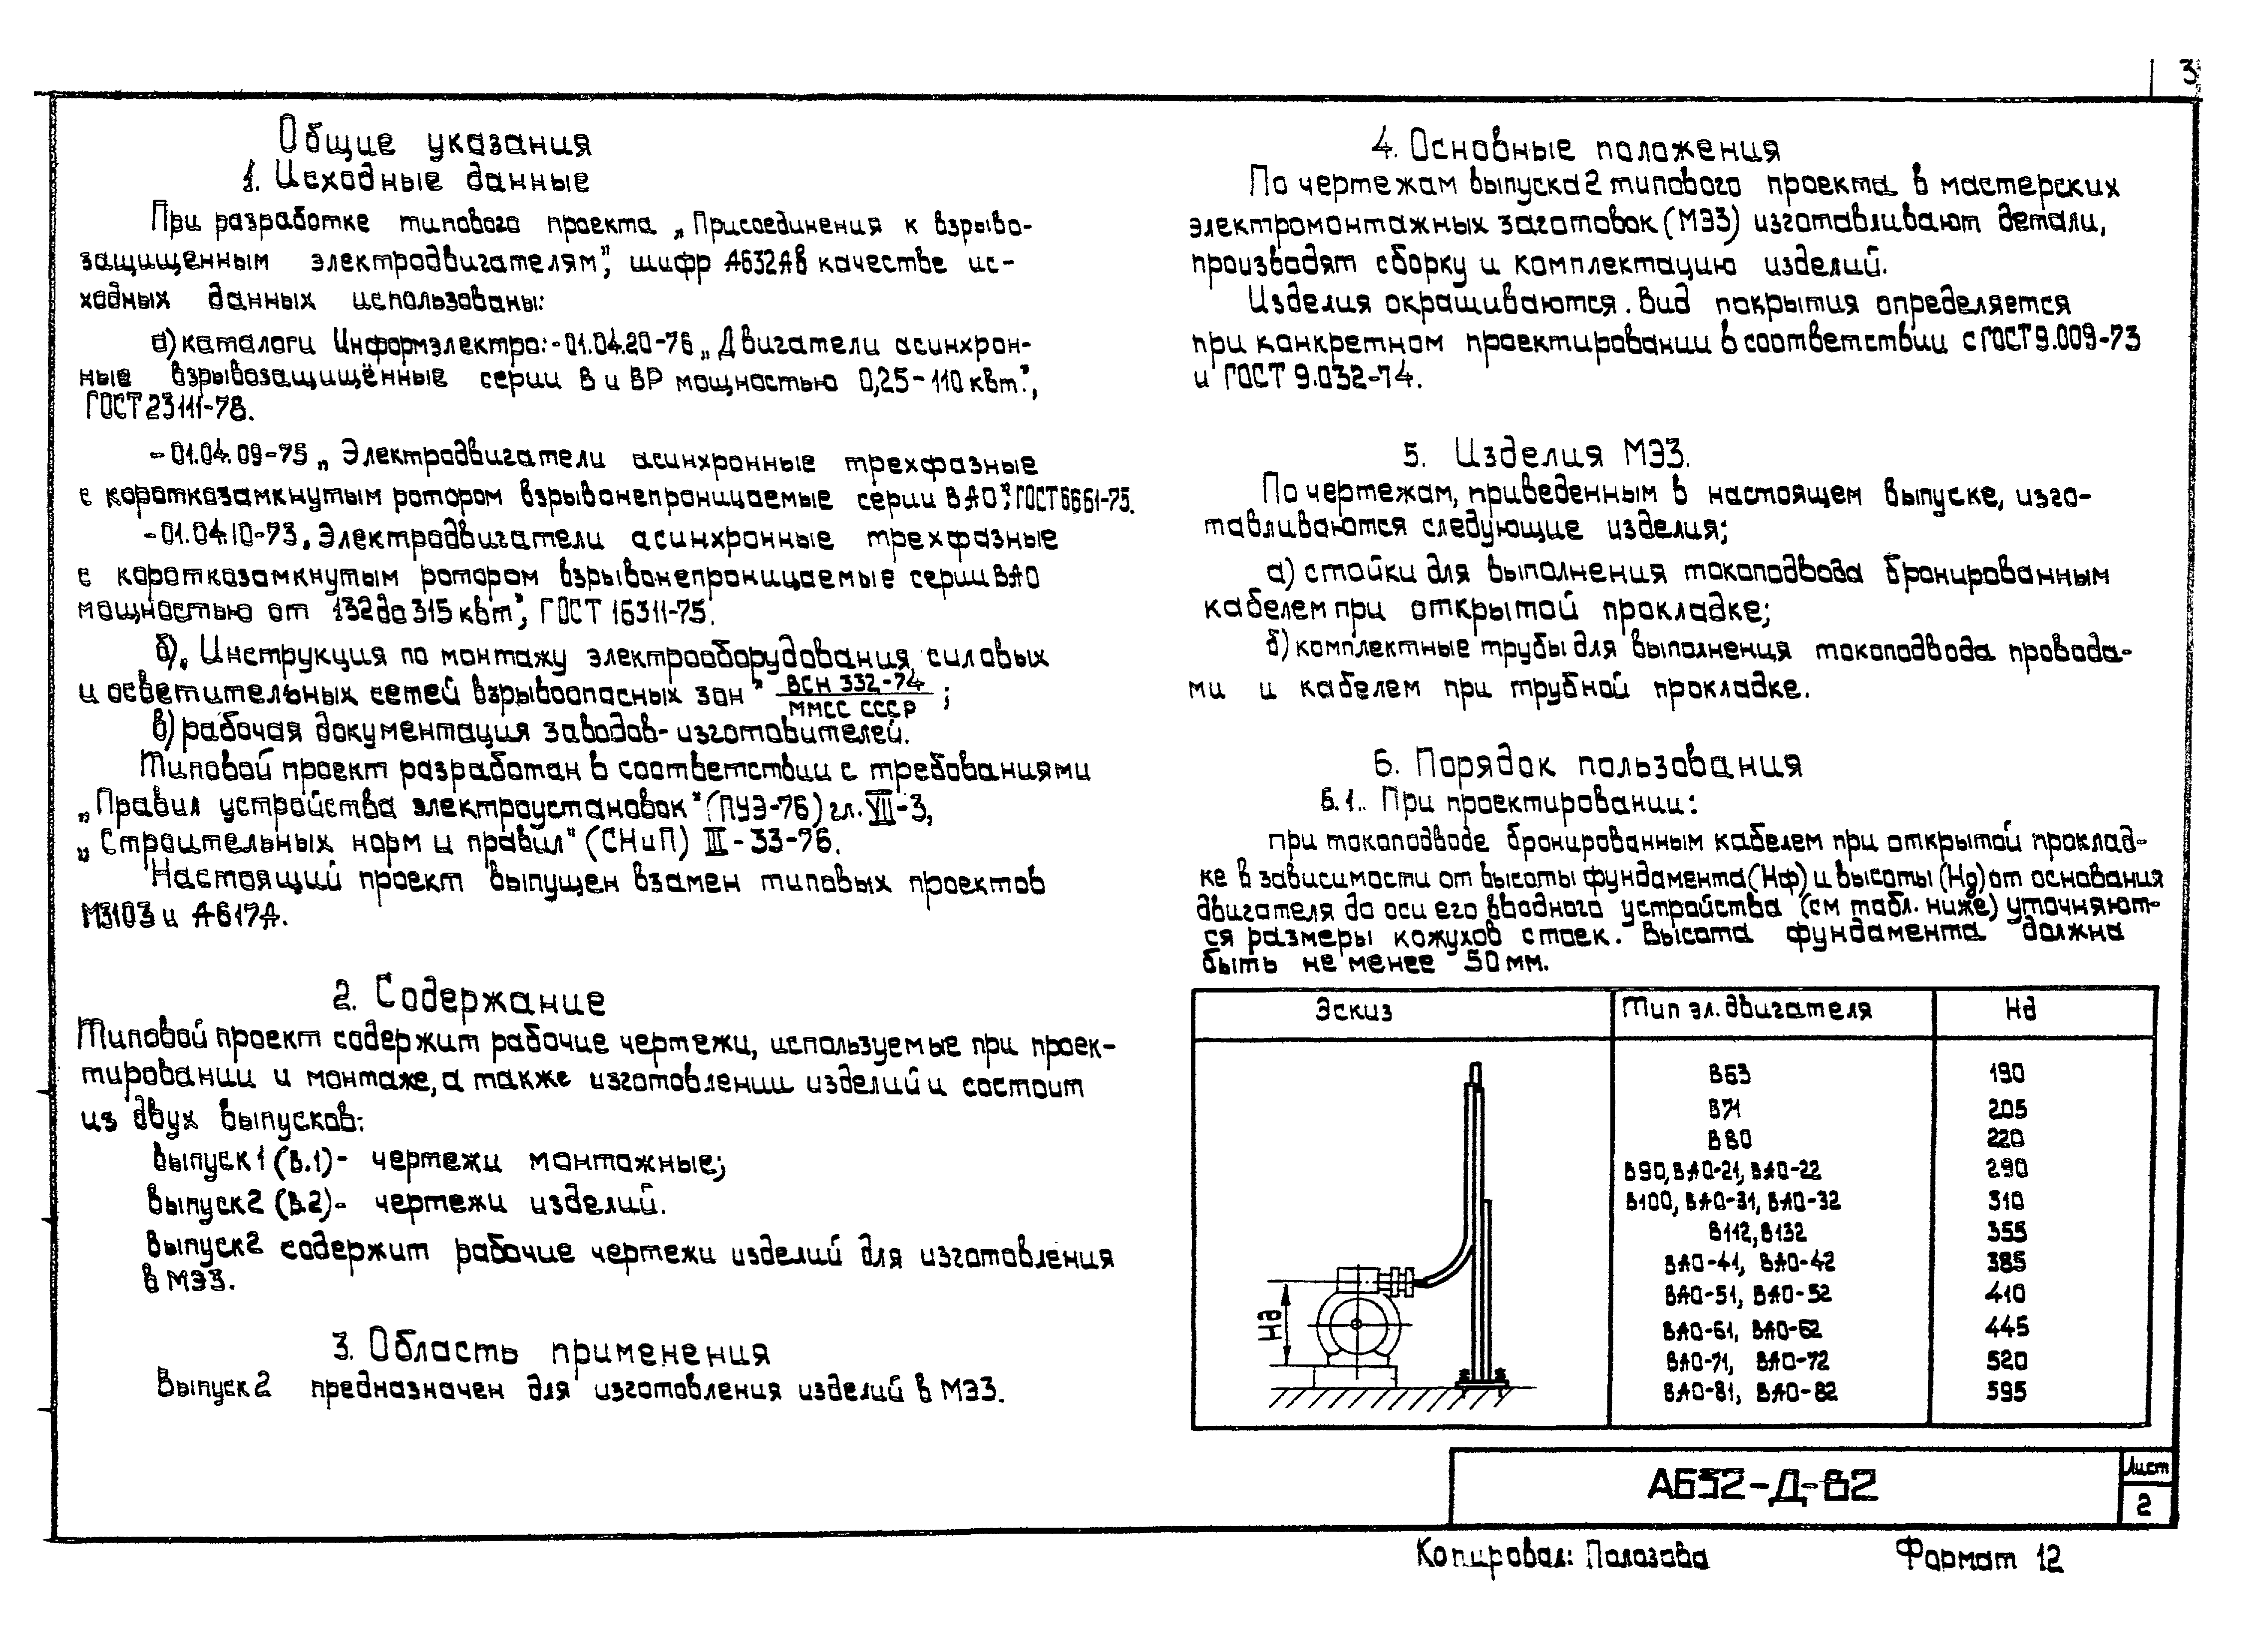 3
Общие указания
1. Исходные данные
При разработке типового проекта „Присоединения к взрыво-
защищенным электродвигателям", шифр А632А в качестве ис-
ходных данных использованы:
а) каталоги Информэлектро: -01.04.20-76 „Двигатели асинхрон-
ные взрывозащищённые серии В и ВР мощностью 0,25-110 квт",
ГОСТ 23111-78.
-01.04.09-75 „Электродвигатели асинхронные трехфазные
с короткозамкнутым ротором взрывонепроницаемые серии ВАО", ГОСТ 6661-75.
-01.04.10-73 „Электродвигатели асинхронные трехфазные
с короткозамкнутым ротором взрывонепроницаемые серии ВАО
мощностью от 132 до 315 квт", ГОСТ 16311-75.
б) „Инструкция по монтажу электрооборудования, силовых
и осветительных сетей взрывоопасных зон" ВСН 332-74
ММСС СССР ;
в) рабочая документация заводов-изготовителей.
Типовой проект разработан в соответствии с требованиями
„Правил устройства электроустановок" (ПУЭ-76) гл. VII-3,
„Строительных норм и правил" (СНиП) III-33-76.
Настоящий проект выпущен взамен типовых проектов
М3103 и А617А.
2. Содержание
Типовой проект содержит рабочие чертежи, используемые при проек-
тировании и монтаже, а также изготовлении изделий и состоит
из двух выпусков:
Выпуск 1 (В.1)- чертежи монтажные;
Выпуск 2 (В.2)- чертежи изделий.
Выпуск 2 содержит рабочие чертежи изделий для изготовления
в МЭЗ.
3. Область применения
Выпуск 2 предназначен для изготовления изделий в МЭЗ.
4. Основные положения
По чертежам выпуска 2 типового проекта в мастерских
электромонтажных заготовок (МЭЗ) изготавливают детали,
производят сборку и комплектацию изделий.
Изделия окрашиваются. Вид покрытия определяется
при конкретном проектировании в соответствии с ГОСТ 9.009-73
и ГОСТ 9.032-74.
5. Изделия МЭЗ.
По чертежам, приведенным в настоящем выпуске, изго-
тавливаются следующие изделия;
а) стойки для выполнения токоподвода бронированным
кабелем при открытой прокладке;
б) комплектные трубы для выполнения токоподвода провода-
ми и кабелем при трубной прокладке.
6. Порядок пользования
6.1. При проектировании:
при токоподводе бронированным кабелем при открытой проклад-
ке в зависимости от высоты фундамента (Нф) и высоты (Нд) от основания
двигателя до оси его вводного устройства (см табл. ниже) уточняют-
ся размеры кожухов стоек. Высота фундамента должна
быть не менее 50 мм.
Эскиз Тип эл. двигателя Нд
В63 190
В71 205
В80 220
В90, ВАО-21, ВАО-22 290
В100, ВАО-31, ВАО-32 310
В112, В132 355
ВАО-41, ВАО-42 385
ВАО-51, ВАО-52 410
ВАО-61, ВАО-62 445
ВАО-71, ВАО-72 520
ВАО-81, ВАО-82 595
Нд
А632-Д-В2
Лист
2
Копировал: Полозова Формат 12